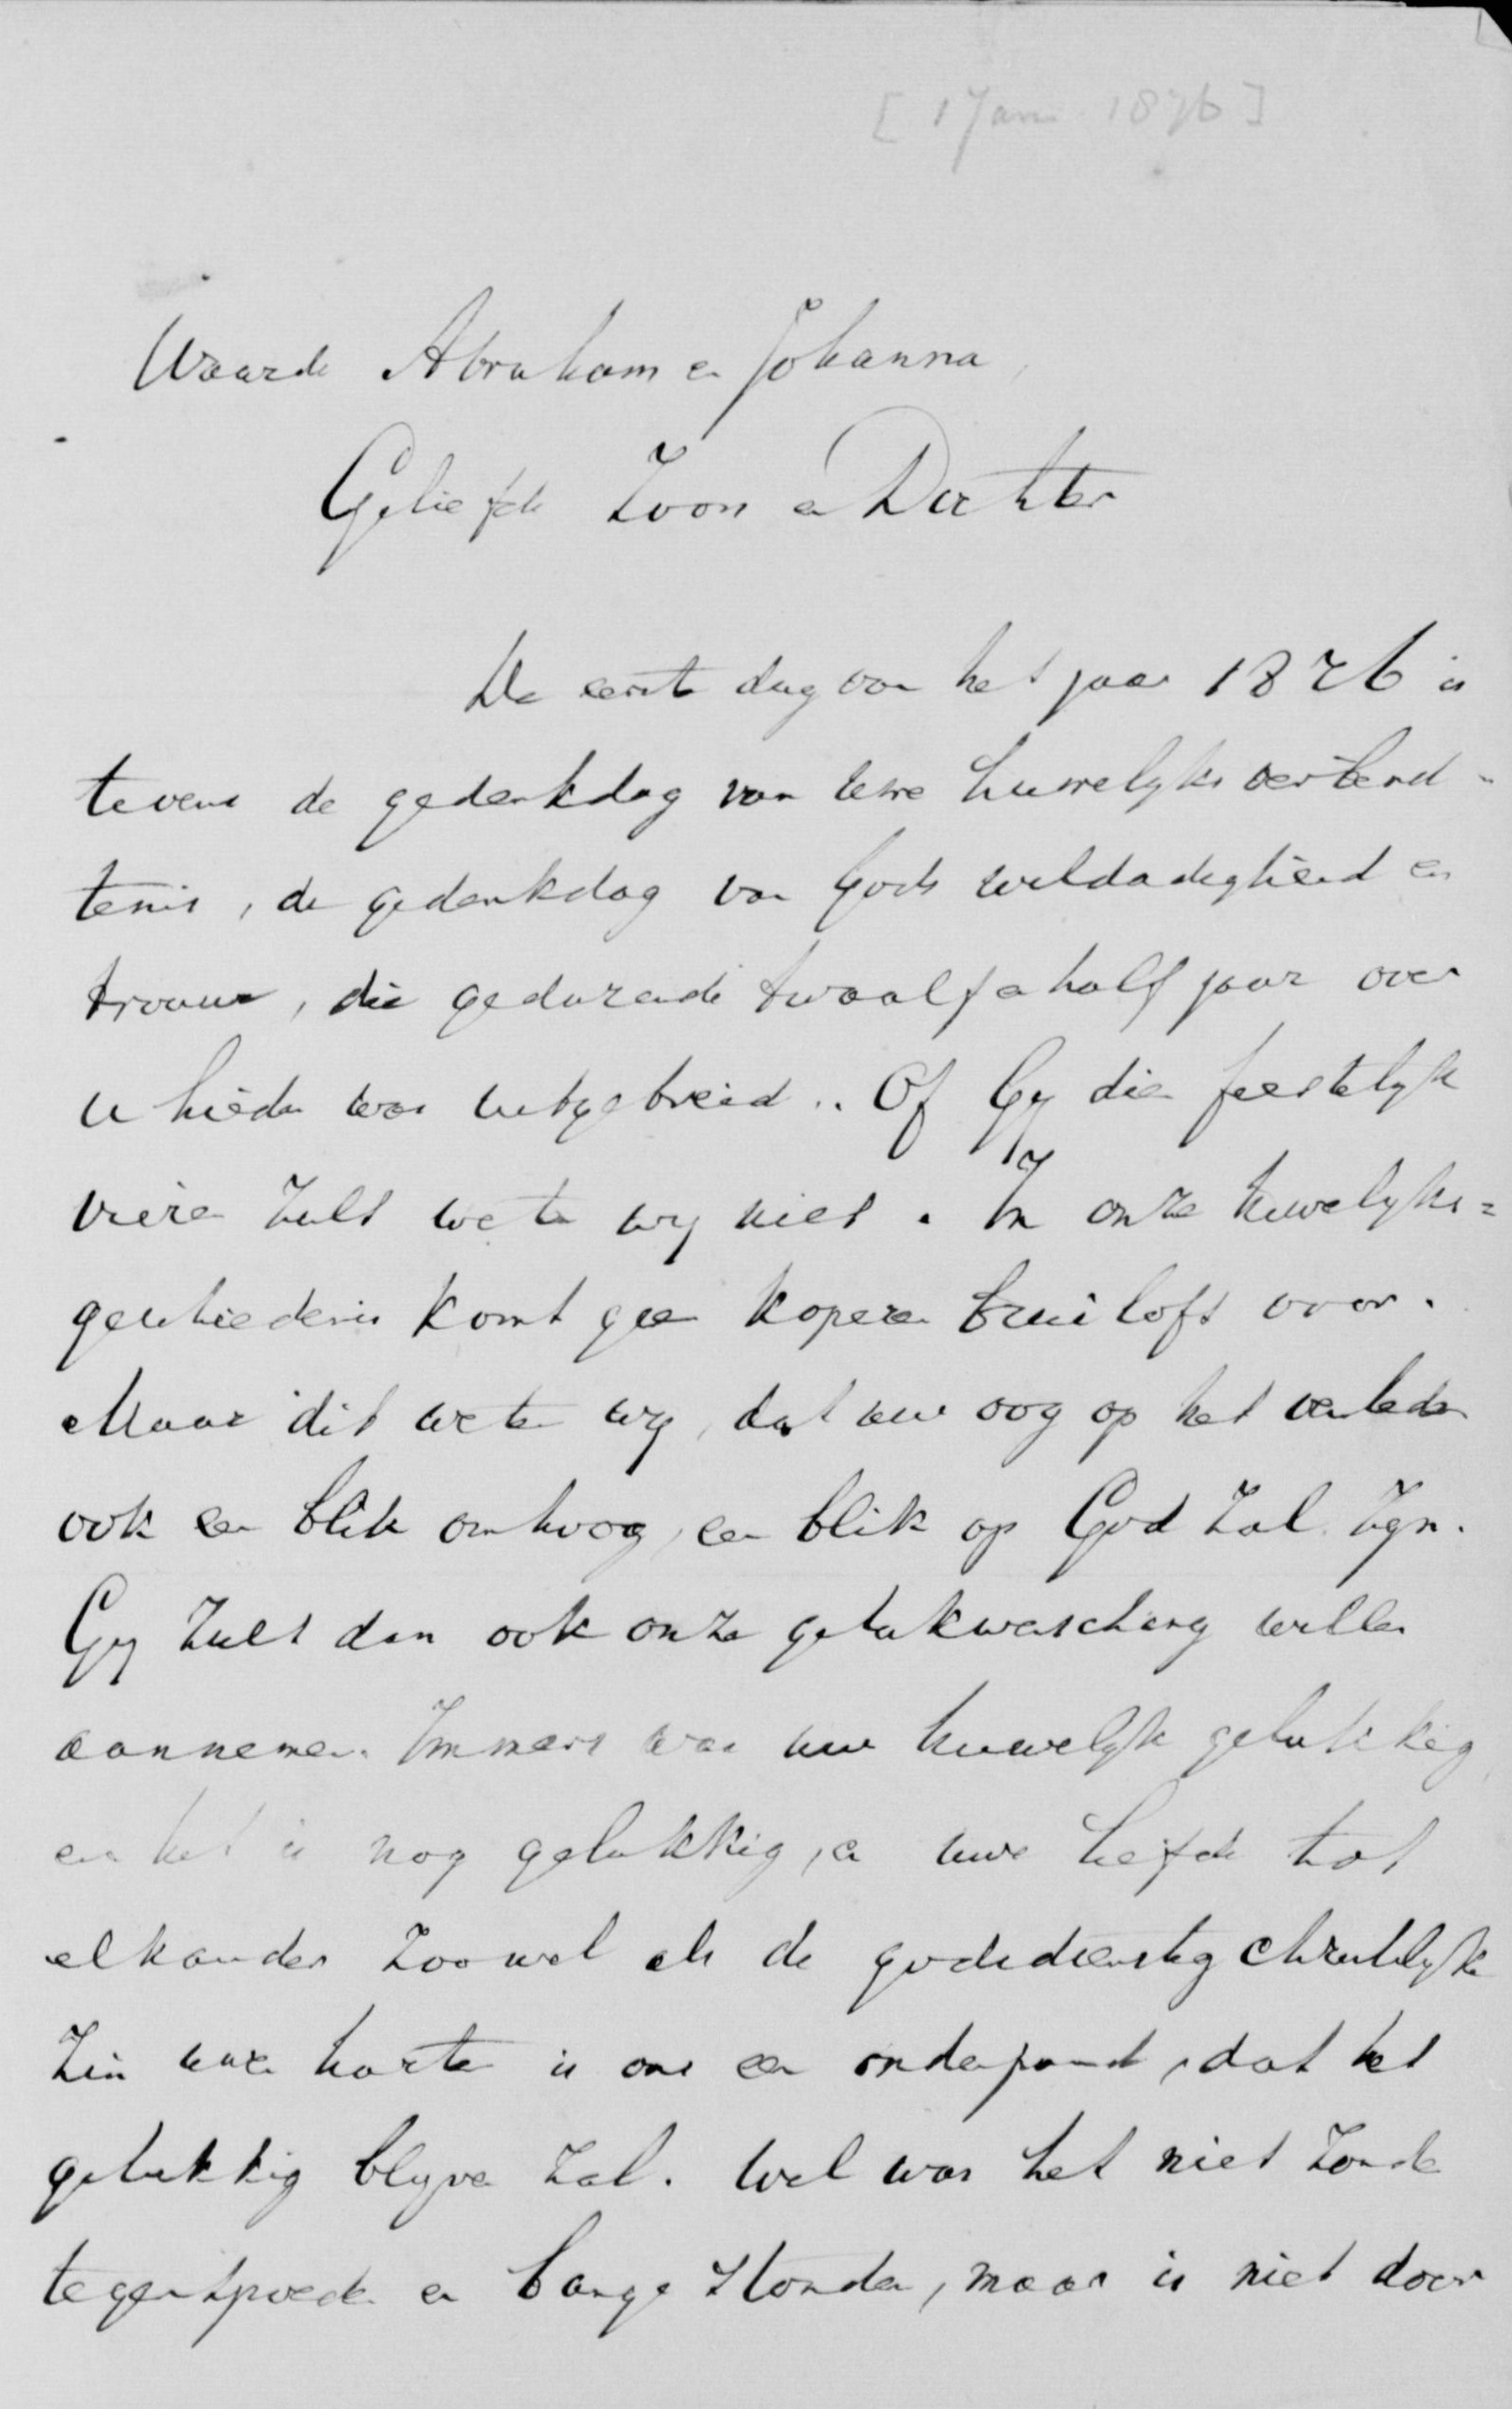 [1 Jan. 1876]
Waarde Abraham en Johanna,
Geliefde Zoon en Dochter
De eerste dag van het jaar 1876 is
tevens de gedenkdag van uwe huwelyks verbind-
tenis, de gedenkdag van Gods weldadigheid en
trouwe, die gedurende twaalf en half jaar over
u hieden was uitgebreid.. Of Gy dien feestelyk
vieren zult weten wy niet. In onze huwelyks=
geschiedenis komt geen koperen bruiloft voor.
Maar dit weten wy, dat uw oog op het verleden
ook een blik omhoog, een blik op God zal zyn.
Gy zult dan ook onze gelukwensching willen
aannemen. Immers was uw huwelyk gelukkig,
en het is nog gelukkig, en uwe liefde tot
elkander zoowel als de godsdienstig christelyke
zin uwer harten is ons een onderpand, dat het
gelukkig blyven zal. Wel was het niet zonder
tegenspoeden en bange stonden, maar is niet door